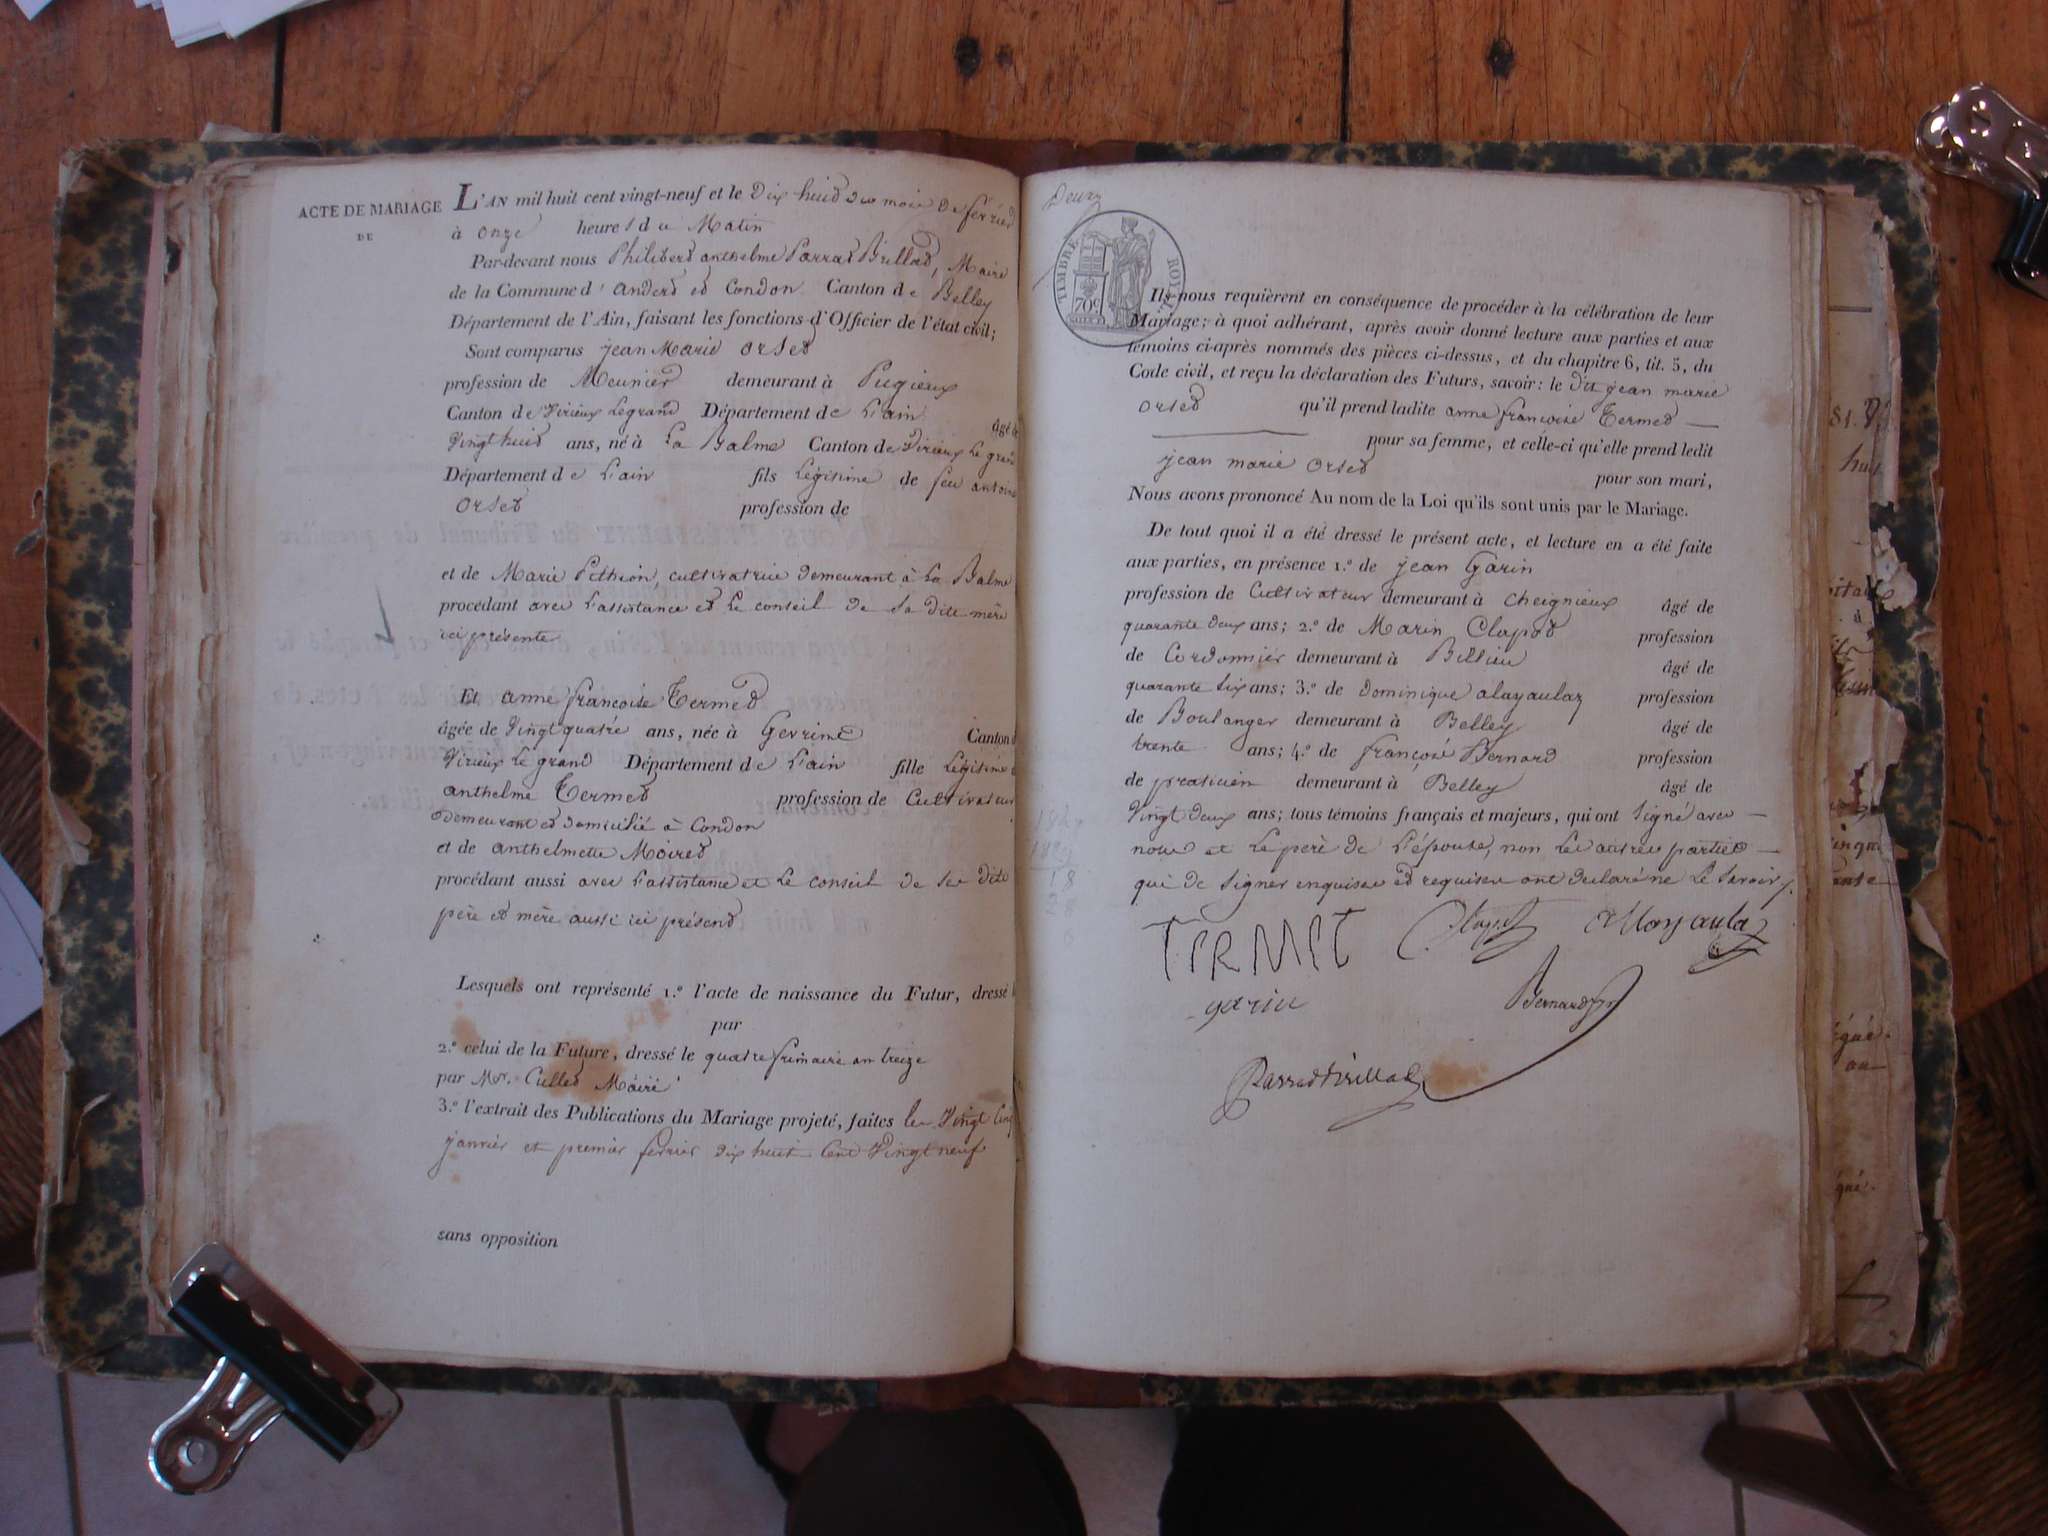 ACTE DE MARIAGE
DE
L'AN mil huit cent vingt-neuf et le Dix huit du mois de février
à onze heures du Matin
Par-devant nous Philibert anthelme Parrat Brillat, Maire
de la Commune d'anders et Condon Canton de Belley
Département de l'Ain, faisant les fonctions d'Officier de l'état civil;
Sont comparus jean Marie orset
profession de Meunier demeurant à Pugieux
Canton de Virieux Legrand Département de L'ain âgé de
Vingt huit ans, né à La Balme Canton de Virieux Le grand
Département de L'ain fils Légitime de feu antoine
orset profession de
et de Marie cultivatrice demeurant à La Balme
procédant avec L'assistance et Le conseil de Sa dite mère
ici présente
Et anne françoise Termet
âgée de Vingt quatre ans, née à Canton
Virieux Le grand Département de L'ain fille Légitime
anthelme Termet profession de Cultivateur
demeurant et domicilié à Condon
et de anthelmette Moiret
procédant aussi avec L'assistance et Le conseil de Ses dits
père et mère aussi ici présent
Lesquels ont représenté 1.º l'acte de naissance du Futur, dressé
par
2.º celui de la Future, dressé le quatre frimaire an treize
par Mr. Cullet Maire
3.º l'extrait des Publications du Mariage projeté, faites les Vingt cinq
janvier et premier fevrier dix huit Cent Vingt neuf
sans opposition
Deux
TIMBRE ROYAL
70c
Ils nous requièrent en conséquence de procéder à la célébration de leur
Mariage; à quoi adhérant, après avoir donné lecture aux parties et aux
témoins ci-après nommés des pièces ci-dessus, et du chapitre 6, tit. 5, du
Code civil, et reçu la déclaration des Futurs, savoir: le dit jean marie
orset qu'il prend ladite anne françoise Termet
pour sa femme, et celle-ci qu'elle prend ledit
jean marie orset pour son mari,
Nous avons prononcé Au nom de la Loi qu'ils sont unis par le Mariage.
De tout quoi il a été dressé le présent acte, et lecture en a été faite
aux parties, en présence 1.º de jean Garin
profession de Cultivateur demeurant à Cheignieux âgé de
quarante deux ans; 2.º de Marin Clapot profession
de Cordonnier demeurant à âgé de
quarante Six ans; 3.º de Dominique profession
de Boulanger demeurant à Belley âgé de
trente ans; 4.º de françois Bernard profession
de praticien demeurant à Belley âgé de
Vingt deux ans; tous témoins français et majeurs, qui ont Signé avec
nous et Le père de L'épouse, non Les autres parties
qui de Signer enquises et requises ont declaré ne Le Savoir
Clapot
garin Bernard
Parrat Brillat